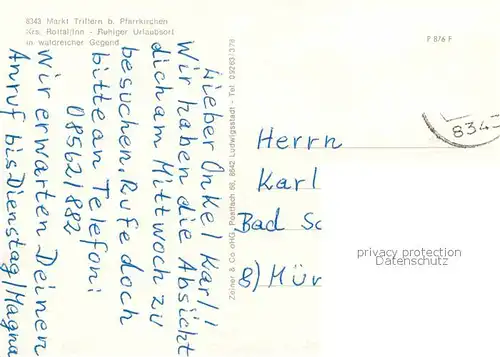 8343 Markt Triftern b. Pfarrkirchen
Krs. Rottal/Inn - Ruhiger Urlaubsort
in waldreicher Gegend
P 876 F
Lieber Onkel Karl!
Wir haben die Absicht
dich am Mittwoch zu
besuchen. Rufe doch
bitte an Telefon:
08562/882
Wir erwarten Deinen
Anruf bis Dienstag/Magna
Zeiner & Co oHG, Postfach 69, 8642 Ludwigsstadt - Tel. 09263/378
834
Herrn
Karl
Bad Sc
8) Mür
privacy protection
Datenschutz